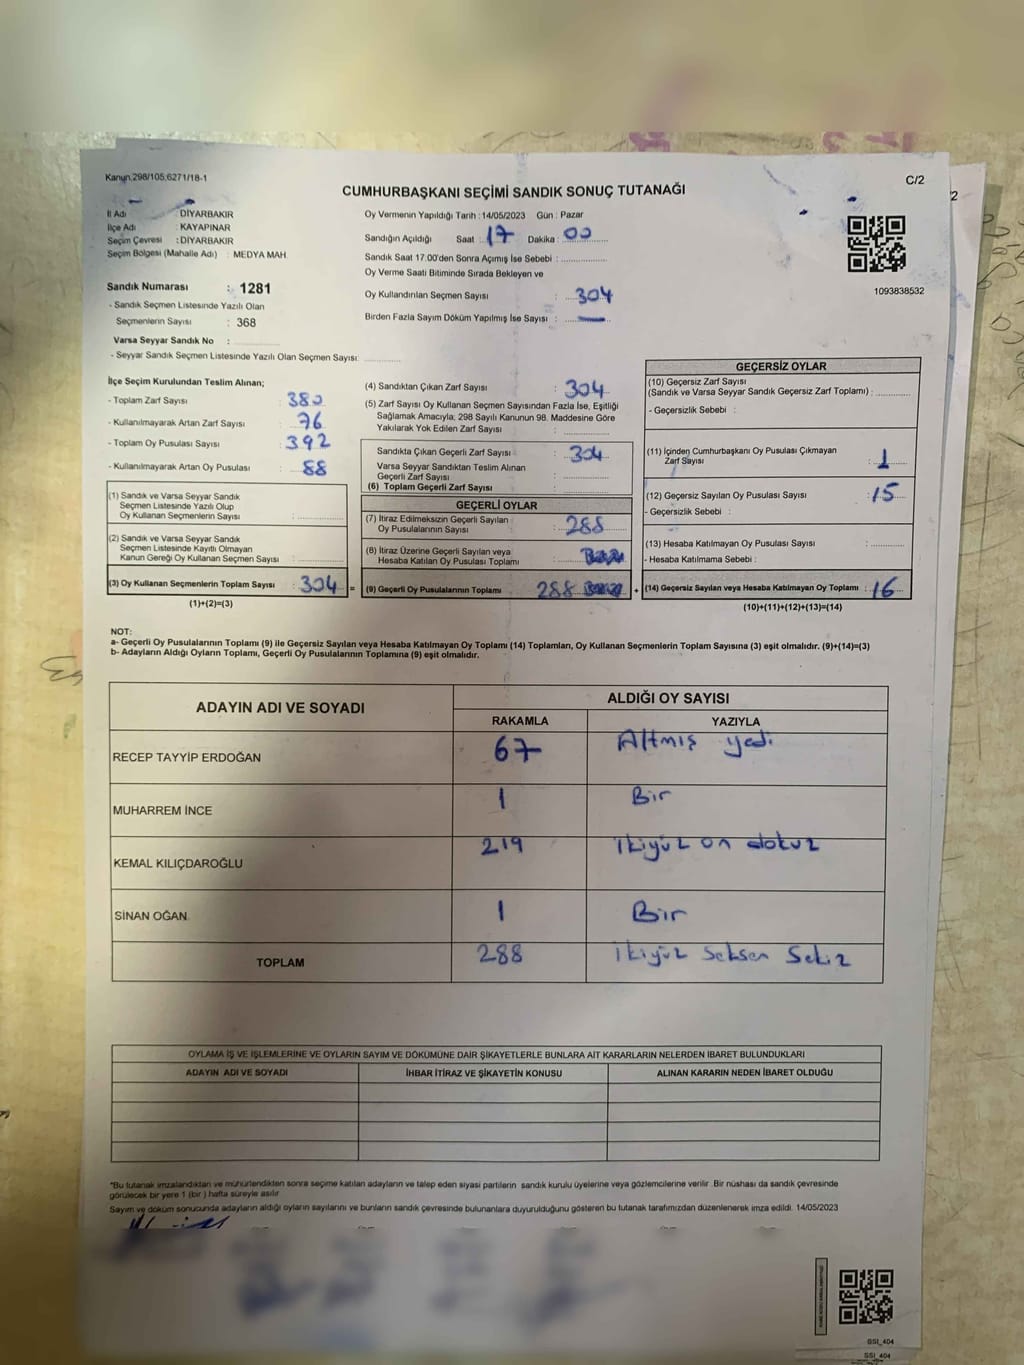 Kanun.298/105;6271/18-1
C/2
CUMHURBAŞKANI SEÇİMİ SANDIK SONUÇ TUTANAĞI
İl Adı : DİYARBAKIR
İlçe Adı : KAYAPINAR
Seçim Çevresi : DİYARBAKIR
Seçim Bölgesi (Mahalle Adı) : MEDYA MAH.
Sandık Numarası : 1281
- Sandık Seçmen Listesinde Yazılı Olan
Seçmenlerin Sayısı : 368
Varsa Seyyar Sandık No :
- Seyyar Sandık Seçmen Listesinde Yazılı Olan Seçmen Sayısı:
Oy Vermenin Yapıldığı Tarih : 14/05/2023 Gün : Pazar
Sandığın Açıldığı Saat : 17 Dakika : 00
Sandık Saat 17.00'den Sonra Açımış İse Sebebi :
Oy Verme Saati Bitiminde Sırada Bekleyen ve
Oy Kullandırılan Seçmen Sayısı : 304
Birden Fazla Sayım Döküm Yapılmış İse Sayısı :
1093838532
İlçe Seçim Kurulundan Teslim Alınan;
- Toplam Zarf Sayısı : 380
- Kullanılmayarak Artan Zarf Sayısı : 76
- Toplam Oy Pusulası Sayısı : 392
- Kullanılmayarak Artan Oy Pusulası : 88
(1) Sandık ve Varsa Seyyar Sandık
Seçmen Listesinde Yazılı Olup
Oy Kullanan Seçmenlerin Sayısı :
(2) Sandık ve Varsa Seyyar Sandık
Seçmen Listesinde Kayıtlı Olmayan
Kanun Gereği Oy Kullanan Seçmen Sayısı :
(3) Oy Kullanan Seçmenlerin Toplam Sayısı : 304 =
(1)+(2)=(3)
(4) Sandıktan Çıkan Zarf Sayısı : 304
(5) Zarf Sayısı Oy Kullanan Seçmen Sayısından Fazla İse, Eşitliği
Sağlamak Amacıyla; 298 Sayılı Kanunun 98. Maddesine Göre
Yakılarak Yok Edilen Zarf Sayısı :
Sandıkta Çıkan Geçerli Zarf Sayısı : 304
Varsa Seyyar Sandıktan Teslim Alınan
Geçerli Zarf Sayısı :
(6) Toplam Geçerli Zarf Sayısı :
GEÇERLİ OYLAR
(7) İtiraz Edilmeksizin Geçerli Sayılan
Oy Pusulalarının Sayısı : 288
(8) İtiraz Üzerine Geçerli Sayılan veya
Hesaba Katılan Oy Pusulası Toplamı :
(9) Geçerli Oy Pusulalarının Toplamı : 288 +
GEÇERSİZ OYLAR
(10) Geçersiz Zarf Sayısı
(Sandık ve Varsa Seyyar Sandık Geçersiz Zarf Toplamı) :
- Geçersizlik Sebebi :
(11) İçinden Cumhurbaşkanı Oy Pusulası Çıkmayan
Zarf Sayısı : 1
(12) Geçersiz Sayılan Oy Pusulası Sayısı : 15
- Geçersizlik Sebebi :
(13) Hesaba Katılmayan Oy Pusulası Sayısı :
- Hesaba Katılmama Sebebi :
(14) Geçersiz Sayılan veya Hesaba Katılmayan Oy Toplamı : 16
(10)+(11)+(12)+(13)=(14)
NOT:
a- Geçerli Oy Pusulalarının Toplamı (9) ile Geçersiz Sayılan veya Hesaba Katılmayan Oy Toplamı (14) Toplamları, Oy Kullanan Seçmenlerin Toplam Sayısına (3) eşit olmalıdır. (9)+(14)=(3)
b- Adayların Aldığı Oyların Toplamı, Geçerli Oy Pusulalarının Toplamına (9) eşit olmalıdır.
ADAYIN ADI VE SOYADI
ALDIĞI OY SAYISI
RAKAMLA YAZIYLA
RECEP TAYYİP ERDOĞAN 67 Altmış yedi
MUHARREM İNCE 1 Bir
KEMAL KILIÇDAROĞLU 219 ikiyüz on dokuz
SİNAN OĞAN 1 Bir
TOPLAM 288 ikiyüz seksen sekiz
OYLAMA İŞ VE İŞLEMLERİNE VE OYLARIN SAYIM VE DÖKÜMÜNE DAİR ŞİKAYETLERLE BUNLARA AİT KARARLARIN NELERDEN İBARET BULUNDUKLARI
ADAYIN ADI VE SOYADI İHBAR İTİRAZ VE ŞİKAYETİN KONUSU ALINAN KARARIN NEDEN İBARET OLDUĞU
*Bu tutanak imzalandıktan ve mühürlendikten sonra seçime katılan adayların ve talep eden siyasi partilerin sandık kurulu üyelerine veya gözlemcilerine verilir. Bir nüshası da sandık çevresinde
görülecek bir yere 1 (bir ) hafta süreyle asılır.
Sayım ve döküm sonucunda adayların aldığı oyların sayılarını ve bunların sandık çevresinde bulunanlara duyurulduğunu gösteren bu tutanak tarafımızdan düzenlenerek imza edildi. 14/05/2023
SSI_404
SSI_404